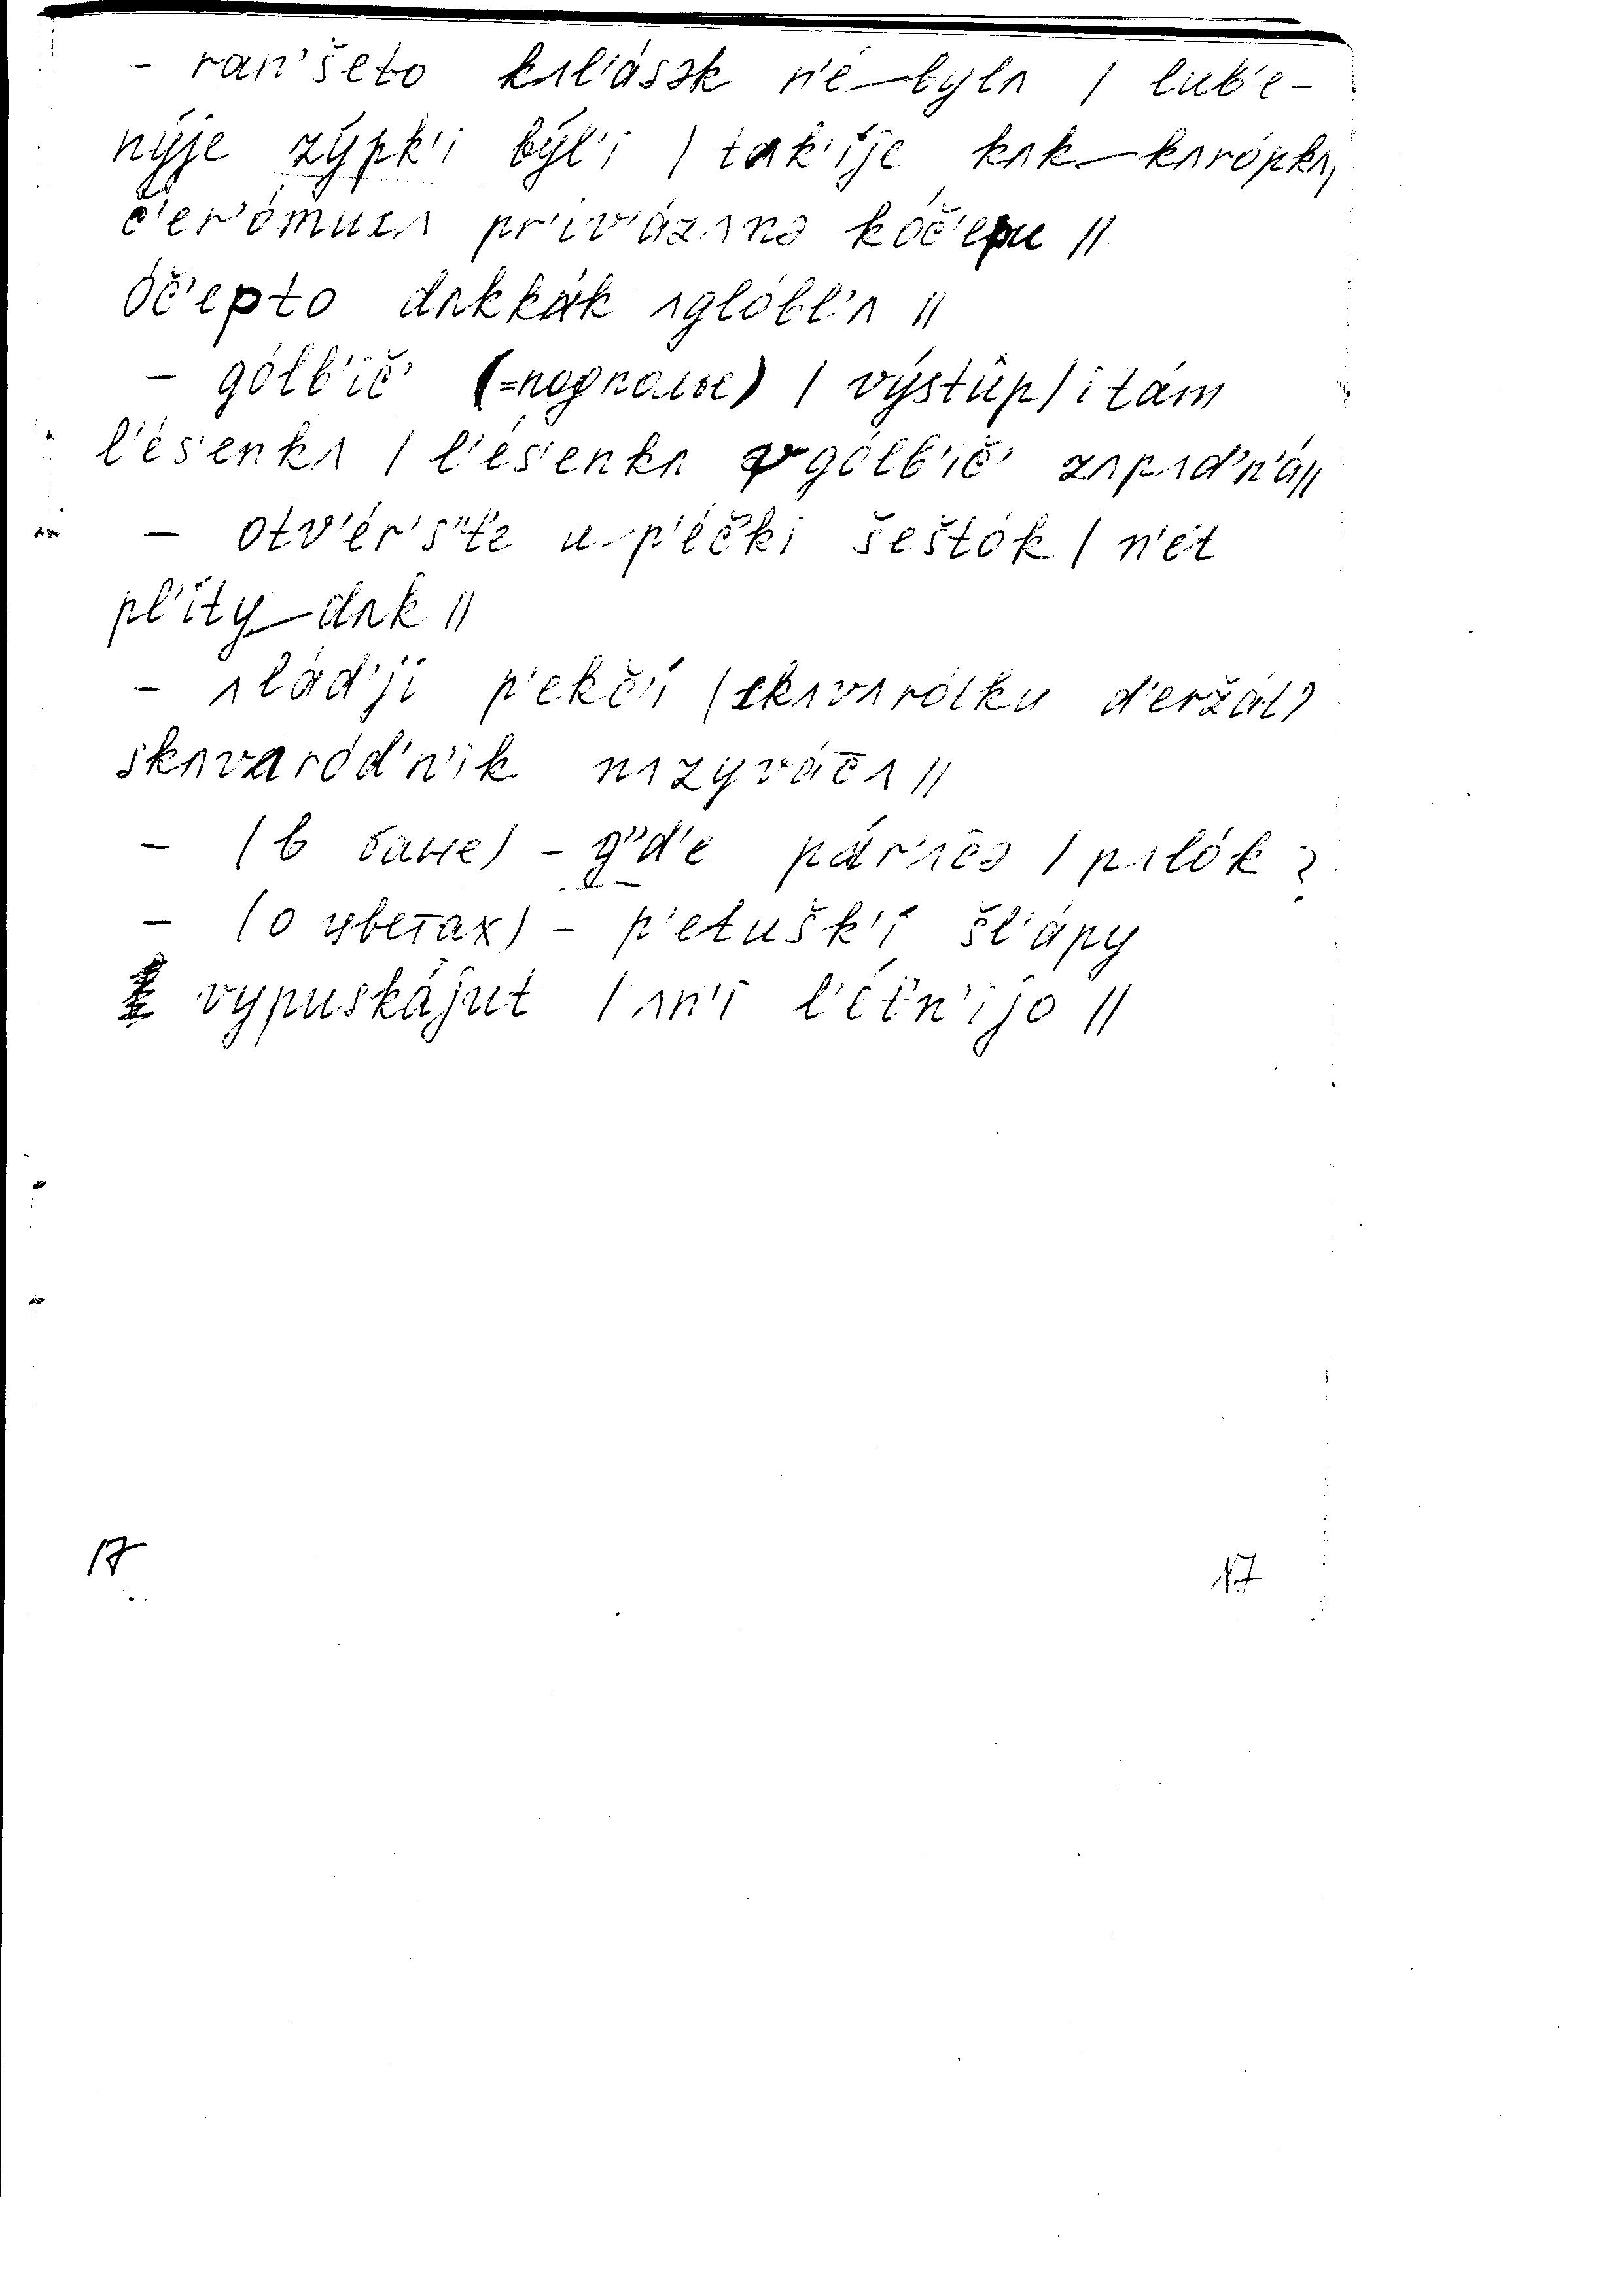 – ran'šeto kʌl'ásək n'é‿bylʌ / lub'e-
nýje zýpk'i býl'i / tak'íje kʌk‿kʌrópkʌ,
č'er'ómuxʌ pr'iv'ázʌnə kóč'epu //
óč'epto dʌkkák ʌglóbl'ʌ //
– gólb'ič' (=подполье) / výstup / i tám
l'és'enkʌ / l'és'enkʌ v gólb'ič' zʌpʌd'n'á //
– otv'ér's't'e u‿p'éčki šeštók / n'ét
pl'íty‿dʌk //
– ʌlád'ji p'ekč'í / skʌvʌrótku d'eržál)
skʌvaród'n'ik nʌzyváčʌ //
– (в бане) – g"d'e pár'ʌčə / pʌlók?
– (о цветах) – p'etušk'í šl'ápy
vypuskájut / ʌn'í l'ét'n'ijo //
17 17